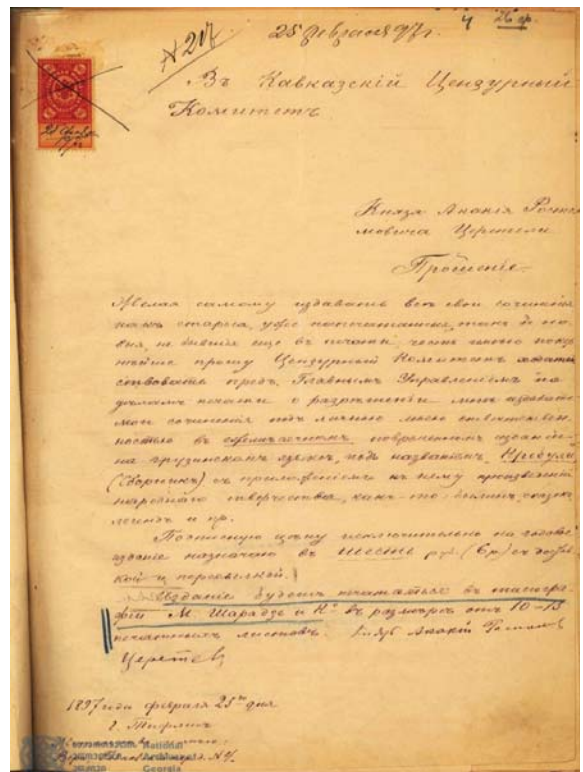 N 217
25 Февраля 97 г.
4 26 ф.
Въ Кавказскій Цензурный
Комитетъ
25 Февр
Князя Акакія Росто-
мовича Церетели
Прошеніе
Желая самому издавать всѣ свои сочиненія
какъ старыя, уже напечатанныя, такъ и но-
выя, не бывшія еще въ печати, честь имѣю покор-
нѣйше прошу Цензурный Комитетъ ходатай-
ствовать предъ Главнымъ Управленіемъ по
дѣламъ печати о разрѣшеніи мнѣ издавать
мои сочиненія подъ личною моею отвѣтствен-
ностью въ ежемѣсячномъ повременномъ изданіи
на грузинскомъ языкѣ, подъ названіемъ „Кребули
(Сборникъ) съ приложеніемъ къ нему произведеній
народнаго творчества, какъ-то: былинъ, сказокъ,
легендъ и пр.
Подписную цѣну исключительно на годовое
изданіе назначаю въ шесть р. (6 р.) съ достав-
кой и пересылкой.
Изданіе будетъ печататься въ типогра-
фіи М. Шарадзе и Кº въ размѣрѣ отъ 10-15
печатныхъ листовъ. Князь Акакій Ростомов
Церетели
1897 года февраля 25го дня
г. Тифлисъ
National
Archives
Georgia